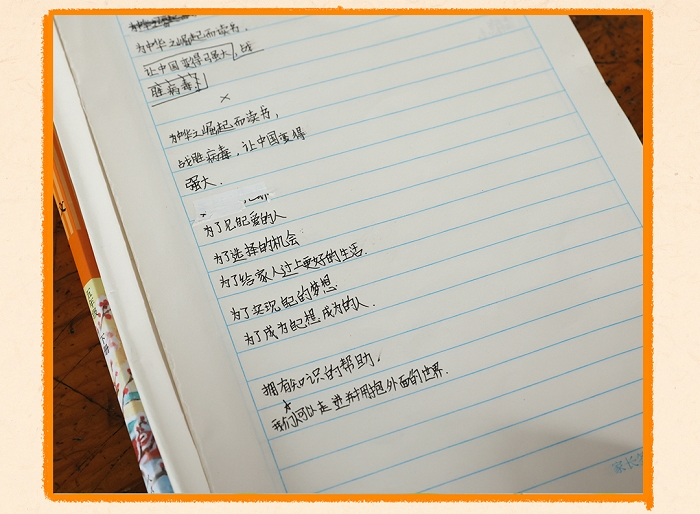 为中华之崛起而读书.
让中国变得强大,战
胜病毒!
×
为中华之崛起而读书,
战胜病毒,让中国变得
强大.
为了见自己爱的人
为了选择的机会
为了给家人过上更好的生活.
为了实现自己的梦想.
为了成为自己想成为的人.
拥有知识的帮助,
我们可以走进并拥抱外面的世界.
家长